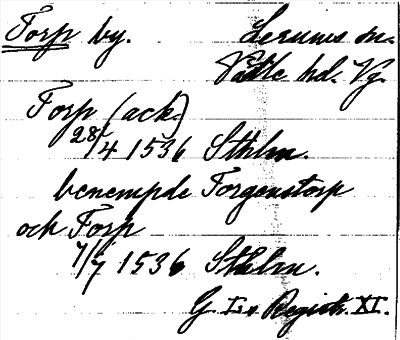 Torp by. Lerums sn.
Vättle hd. Vg.
Torp (ack.)
28/4 1536 Sthlm.
benempde Torgenstorp
och Torp
7/7 1536 Sthlm.
G. I.s Registr. XI.